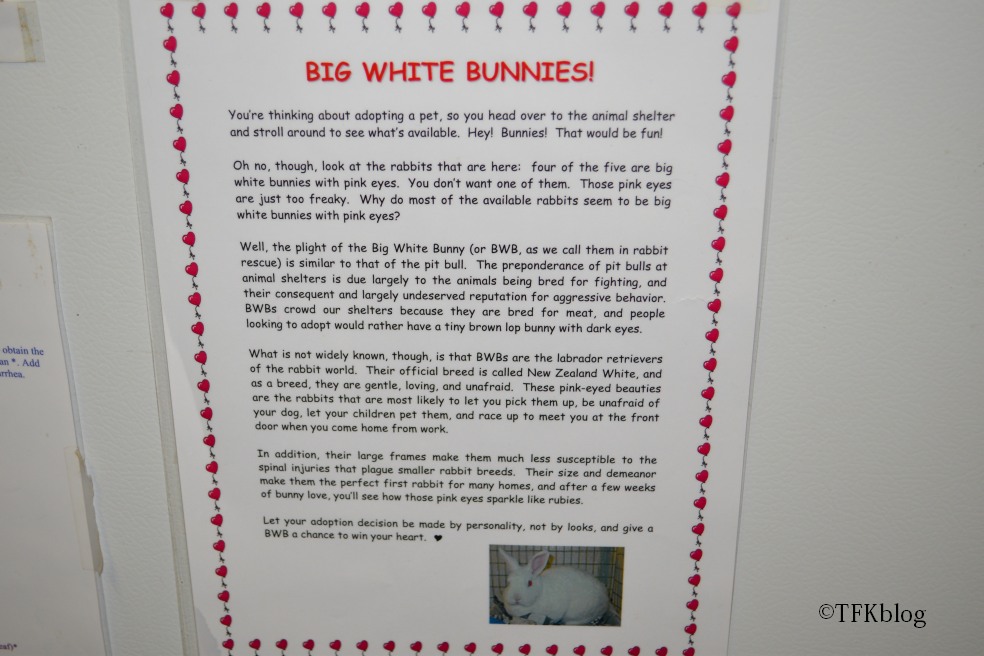 BIG WHITE BUNNIES!
You're thinking about adopting a pet, so you head over to the animal shelter
and stroll around to see what's available. Hey! Bunnies! That would be fun!
Oh no, though, look at the rabbits that are here: four of the five are big
white bunnies with pink eyes. You don't want one of them. Those pink eyes
are just too freaky. Why do most of the available rabbits seem to be big
white bunnies with pink eyes?
Well, the plight of the Big White Bunny (or BWB, as we call them in rabbit
rescue) is similar to that of the pit bull. The preponderance of pit bulls at
animal shelters is due largely to the animals being bred for fighting, and
their consequent and largely undeserved reputation for aggressive behavior.
BWBs crowd our shelters because they are bred for meat, and people
looking to adopt would rather have a tiny brown lop bunny with dark eyes.
What is not widely known, though, is that BWBs are the labrador retrievers
of the rabbit world. Their official breed is called New Zealand White, and
as a breed, they are gentle, loving, and unafraid. These pink-eyed beauties
are the rabbits that are most likely to let you pick them up, be unafraid of
your dog, let your children pet them, and race up to meet you at the front
door when you come home from work.
In addition, their large frames make them much less susceptible to the
spinal injuries that plague smaller rabbit breeds. Their size and demeanor
make them the perfect first rabbit for many homes, and after a few weeks
of bunny love, you'll see how those pink eyes sparkle like rubies.
Let your adoption decision be made by personality, not by looks, and give a
BWB a chance to win your heart. ♥
obtain the
an *. Add
©TFKblog